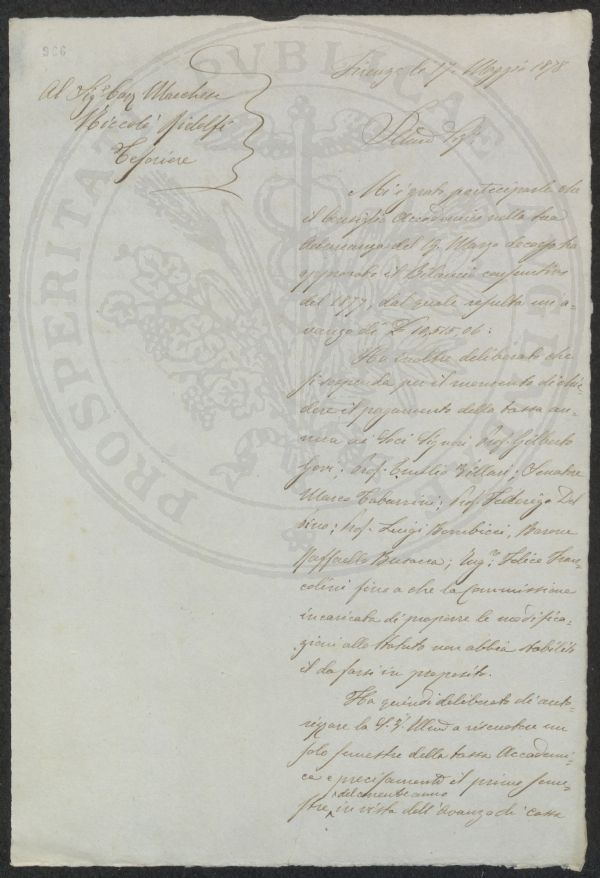 906
Firenze li 17. Maggio 1878
Al Sig.r Cav. Marchese
Niccolò Ridolfi
Tesoriere
Illmo Sig.
Mi è grato parteciparle che
il Consiglio Accademico nella sua
Adunanza del 19. Marzo decorso ha
approvato il Bilancio consuntivo
del 1877, dal quale resulta un'a-
vanzo di £ 10,515.06:
Ha inoltre deliberato che
si sospenda per il momento di chie-
dere il pagamento della tassa an-
nua ai Soci Signori Prof. Gilberto
Govi; Prof. Emilio Villari; Senatore
Marco Tabarrini; Prof. Federigo Del
pino; Prof. Luigi Bombicci, Barone
Raffaello Busacca; Ing.re Felice Fran-
colini fino a che la Commissione
incaricata di proporre le modifica-
zioni allo Statuto non abbia stabilito
il da farsi in proposito.
Ha quindi deliberato di auto-
rizzare la S. V. Illma a riscuotere un
solo semestre della tassa Accademi-
ca e precisamente il primo seme-
del corrente anno
stre, in vista dell'avanzo di cassa
PROSPERITATI PUBLICAE AUGENDAE